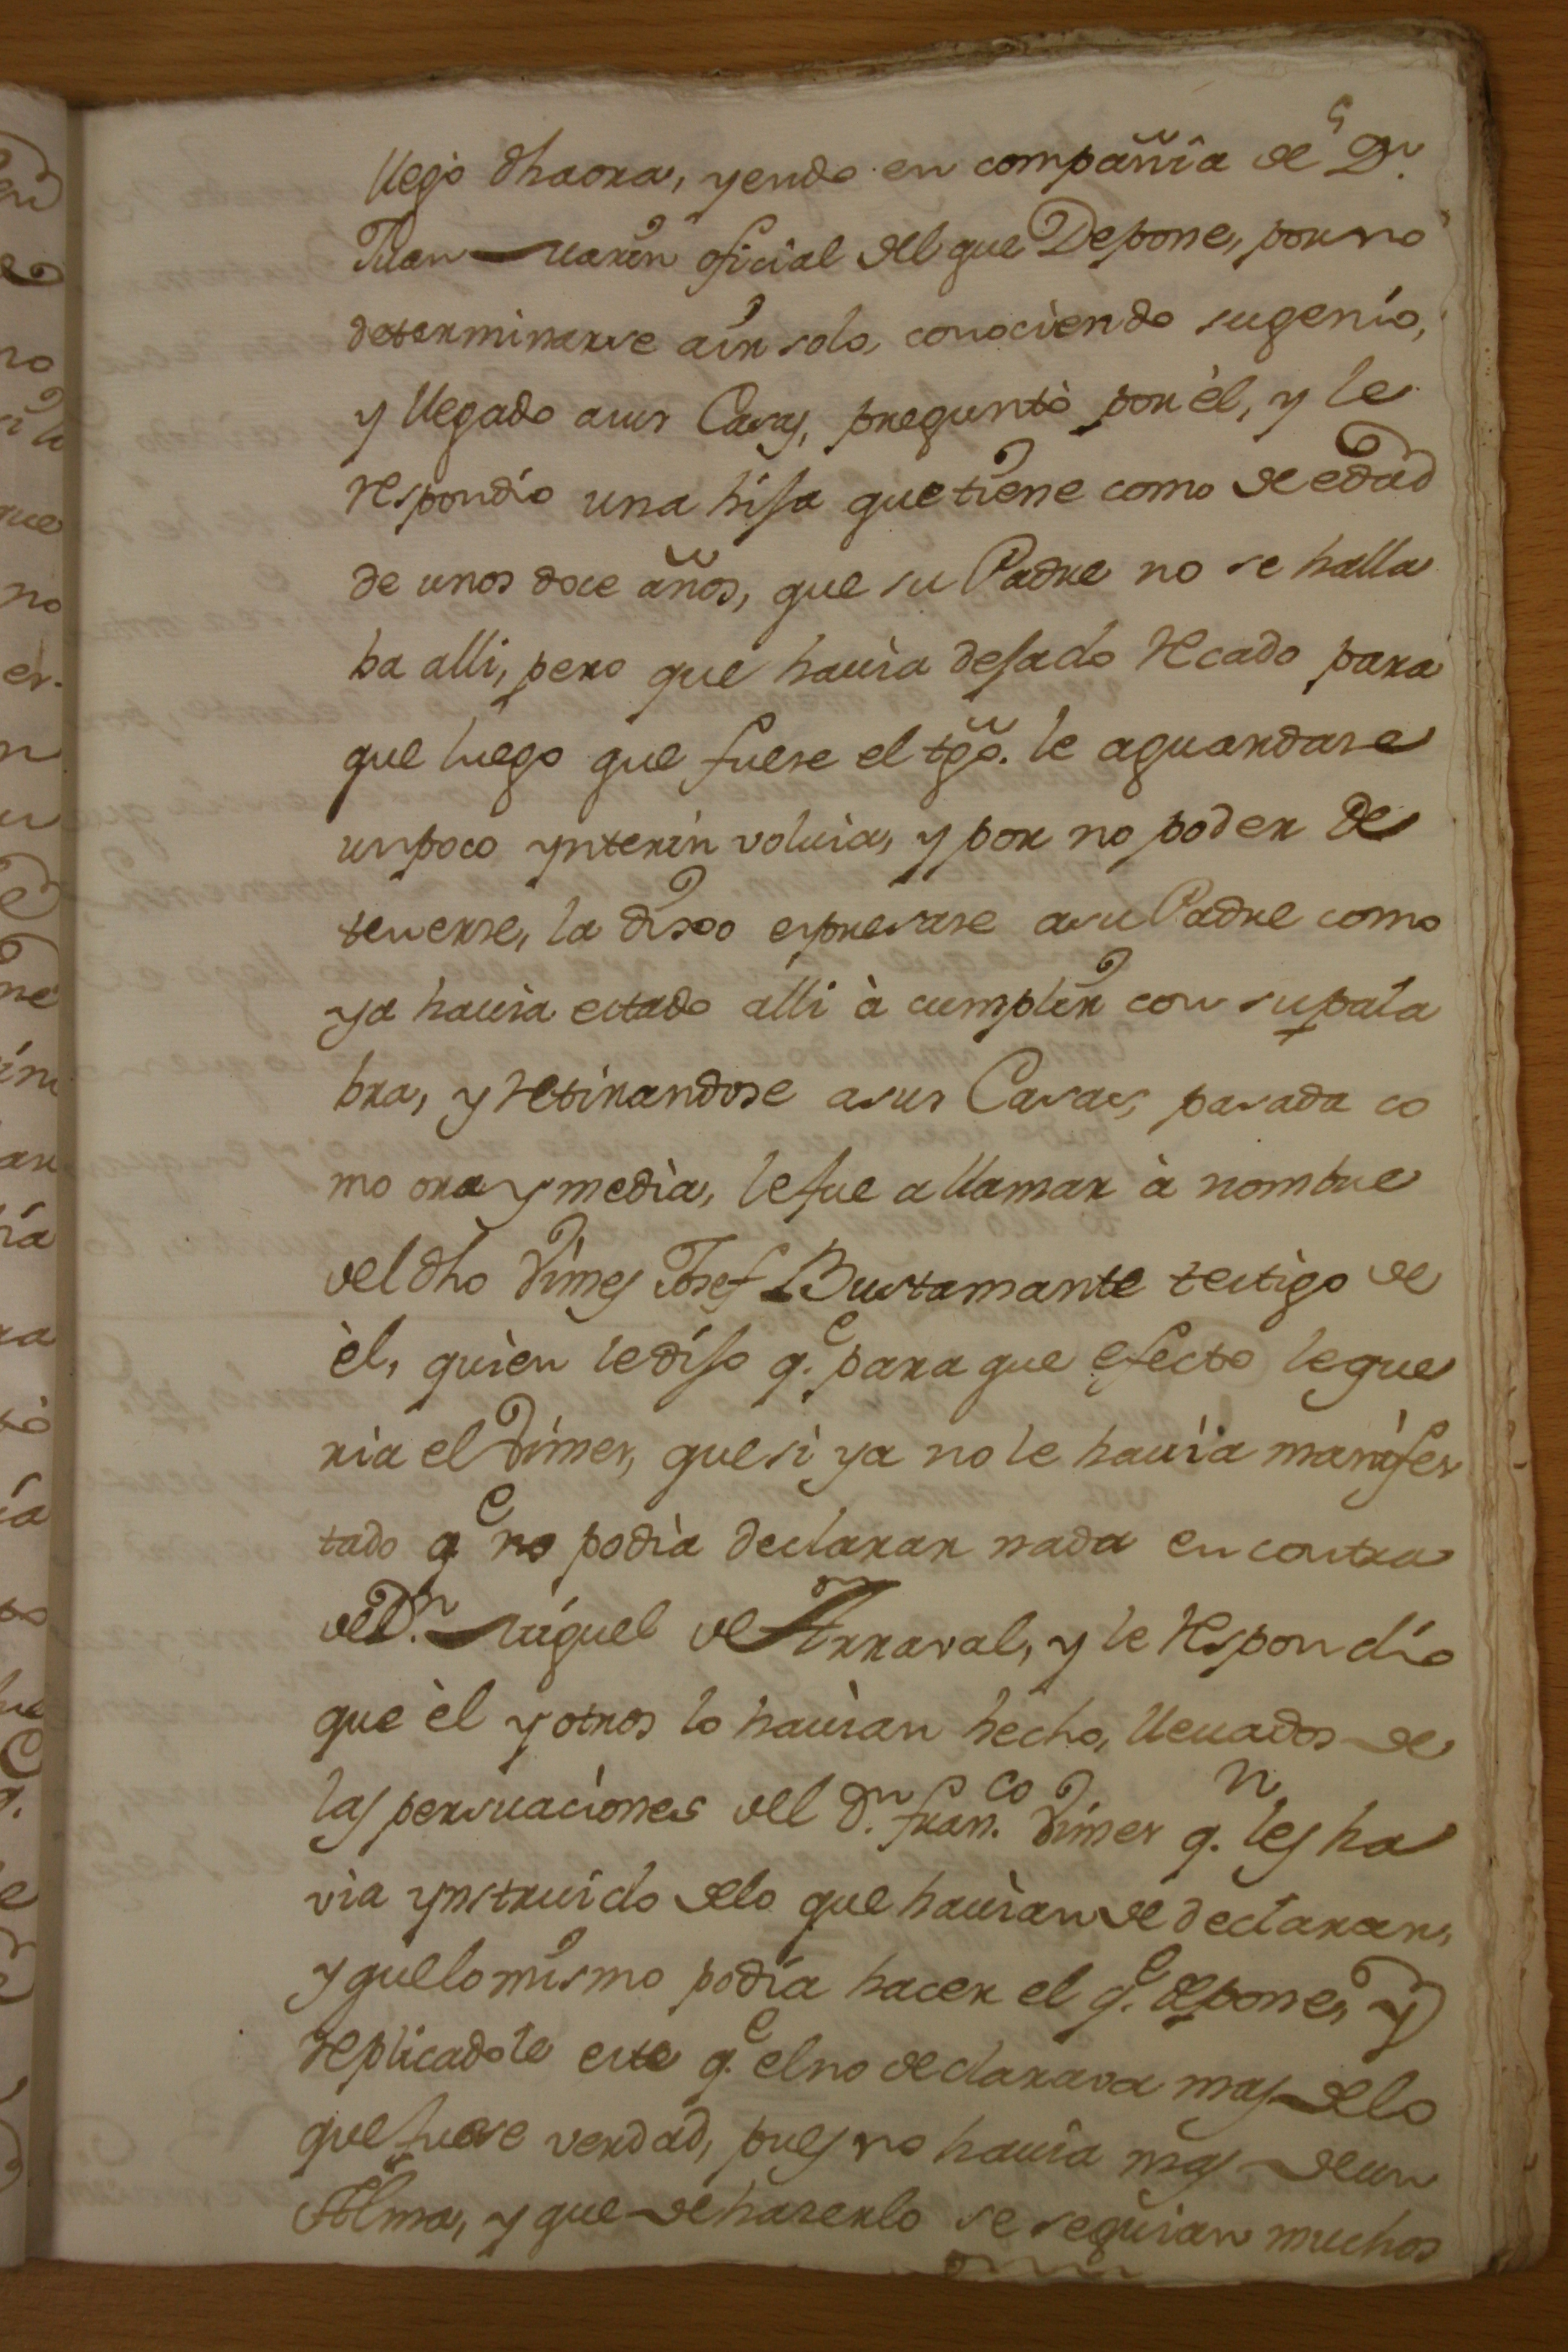 llegó dha ora, yendo en compañia de Dn.
Juan Marin oficial del que Depone, por no
determinarse a ir solo, conociendo su genio,
y llegado a sus Casas, preguntò por èl, y le
respondio una hija que tiene como de edad
de unos doce años, que su Padre no se halla
ba alli, pero que havia dejado recado para
que luego que fuese el tgo. le aguardase
un poco ynterin volvia, y por no poder de
tenerse, la dixo expresase a su Padre como
ya havia estado alli à cumplir con su pala
bra, y retirandose a sus Casas, pasada co
mo ora y media, le fue a llamar à nombre
del dho Jimes Josef Bustamante testigo de
èl, quien le dijo q.e para que efecto le que
ria el Jimes, que si ya no le havia manifes
tado q.e no podia declarar nada en contra
de D.n Miguel de Arraval, y le respondio
que èl y otros lo havian hecho, llevados de
las persuaciones del D.n Fran.co Jimes q.n les ha
via ynstruido de lo que havian de declarar,
y que lo mismo podia hacer el q.e depone, y
replicadole este q.e el no declarava mas de lo
que fuese verdad, pues no havia mas de un
Alma, y que de haserlo se seguian muchos